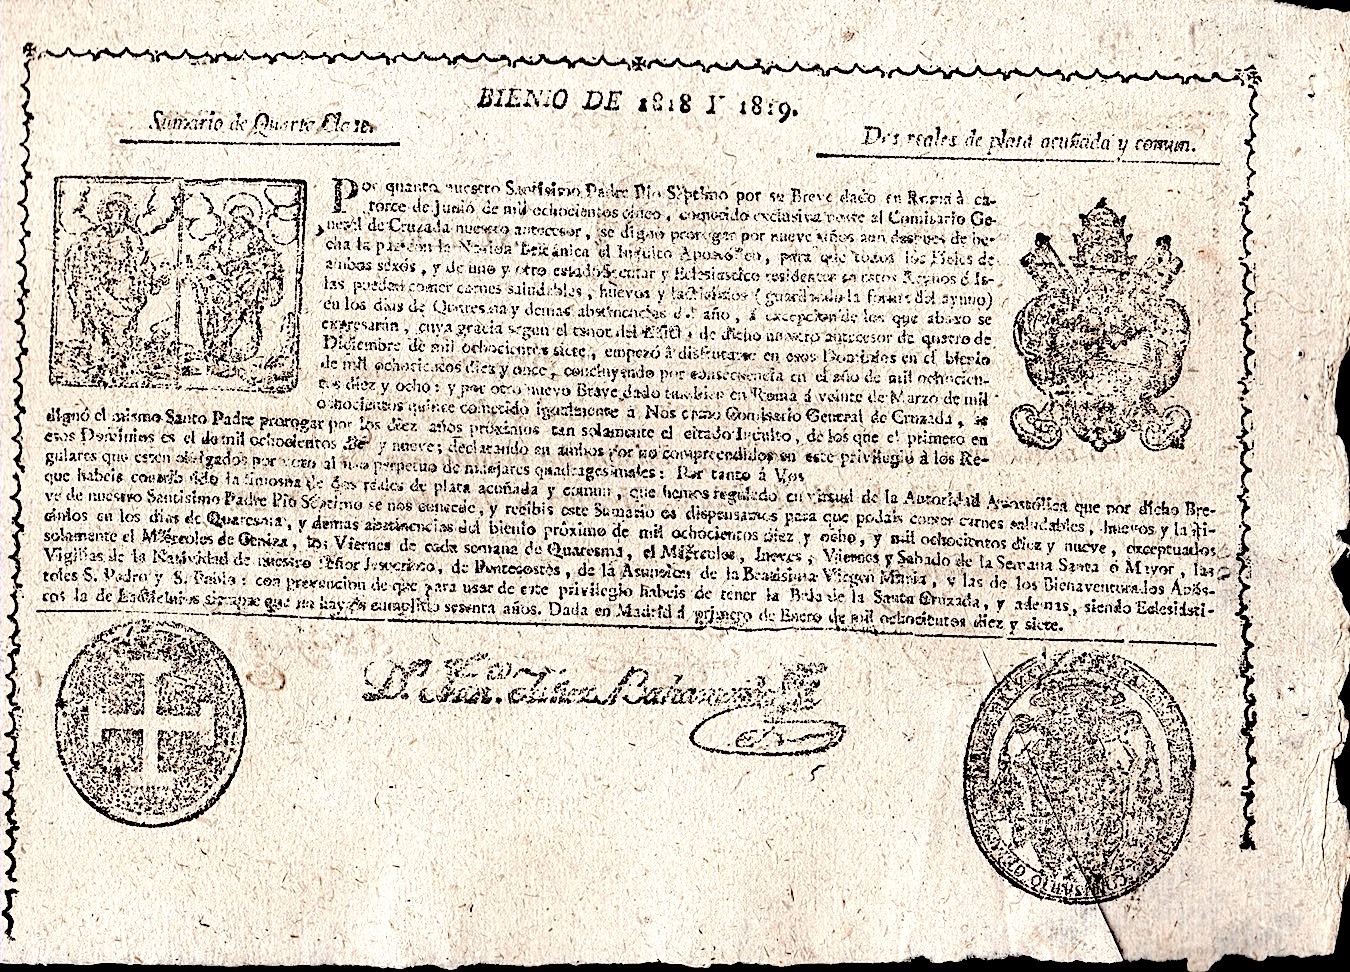 BIENIO DE 1818 Y 1819.
Sumario de Quarta Clase.
Dos reales de plata acuñada y comun.
Por quanto nuestro Santísimo Padre Pio Séptimo por su Breve dado en Roma á ca-
torce de Junio de mil ochocientos cinco, cometido exclusivamente al Comisario Ge-
neral de Cruzada nuestro antecesor, se dignó prorogar por nueve años aun despues de he-
cha la paz con la Nacion Británica el Indulto Apostólico, para que todos los Fieles de
ambos sexôs, y de uno y otro estado Secular y Eclesiastico residentes en estos Reynos é Is-
las puedan comer carnes saludables, huevos y lacticinios (guardando la forma del ayuno)
en los dias de Quaresma y demas abstinencias del año, á excepcion de los que abaxo se
expresarán, cuya gracia segun el tenor del Edicto de dicho nuestro antecesor de quatro de
Diciembre de mil ochocientos siete, empezó á disfrutarse en esos Dominios en el bienio
de mil ochocientos diez y once, concluyendo por consecuencia en el año de mil ochocien-
tos diez y ocho: y por otro nuevo Breve dado tambien en Roma á veinte de Marzo de mil
ochocientos quince cometido igualmente á Nos como Comisario General de Cruzada, se
dignó el mismo Santo Padre prorogar por los diez años próximos tan solamente el citado Indulto, de los que el primero en
esos Dominios es el de mil ochocientos diez y nueve; declarando en ambos por no comprendidos en este privilegio á los Re-
gulares que esten obligados por voto al uso perpetuo de manjares quadragesimales: Por tanto á Vos
que habeis contribuido la limosna de dos reales de plata acuñada y comun, que hemos regulado en virtud de la Autoridad Apostólica que por dicho Bre-
ve de nuestro Santísimo Padre Pio Séptimo se nos concede, y recibis este Sumario os dispensamos para que podais comer carnes saludables, huevos y lacti-
cinios en los dias de Quaresma, y demas abstinencias del bienio próximo de mil ochocientos diez y ocho, y mil ochocientos diez y nueve, exceptuados
solamente el Miércoles de Ceniza, los Viernes de cada semana de Quaresma, el Miércoles, Jueves, Viernes y Sabado de la Semana Santa ó Mayor, las
Vigilias de la Natividad de nuestro Señor Jesucristo, de Pentecostés, de la Asuncion de la Beatísima Virgen Maria, y las de los Bienaventurados Após-
toles S. Pedro y S. Pablo: con prevencion de que para usar de este privilegio habeis de tener la Bula de la Santa Cruzada, y ademas, siendo Eclesiásti-
cos la de Lacticinios siempre que no hayais cumplido sesenta años. Dada en Madrid á primero de Enero de mil ochocientos diez y siete.